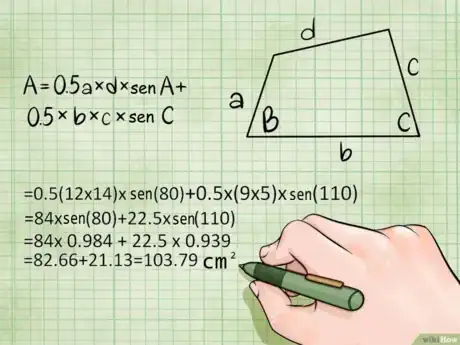 d
A=0.5a×d×sen A+
0.5×b×c×sen C
a
c
B
C
b
=0.5(12x14)x sen(80)+0.5x(9x5)x sen(110)
=84xsen(80)+22.5xsen(110)
=84x 0.984 + 22.5 x 0.939
=82.66+21.13=103.79 cm²
wikiHow